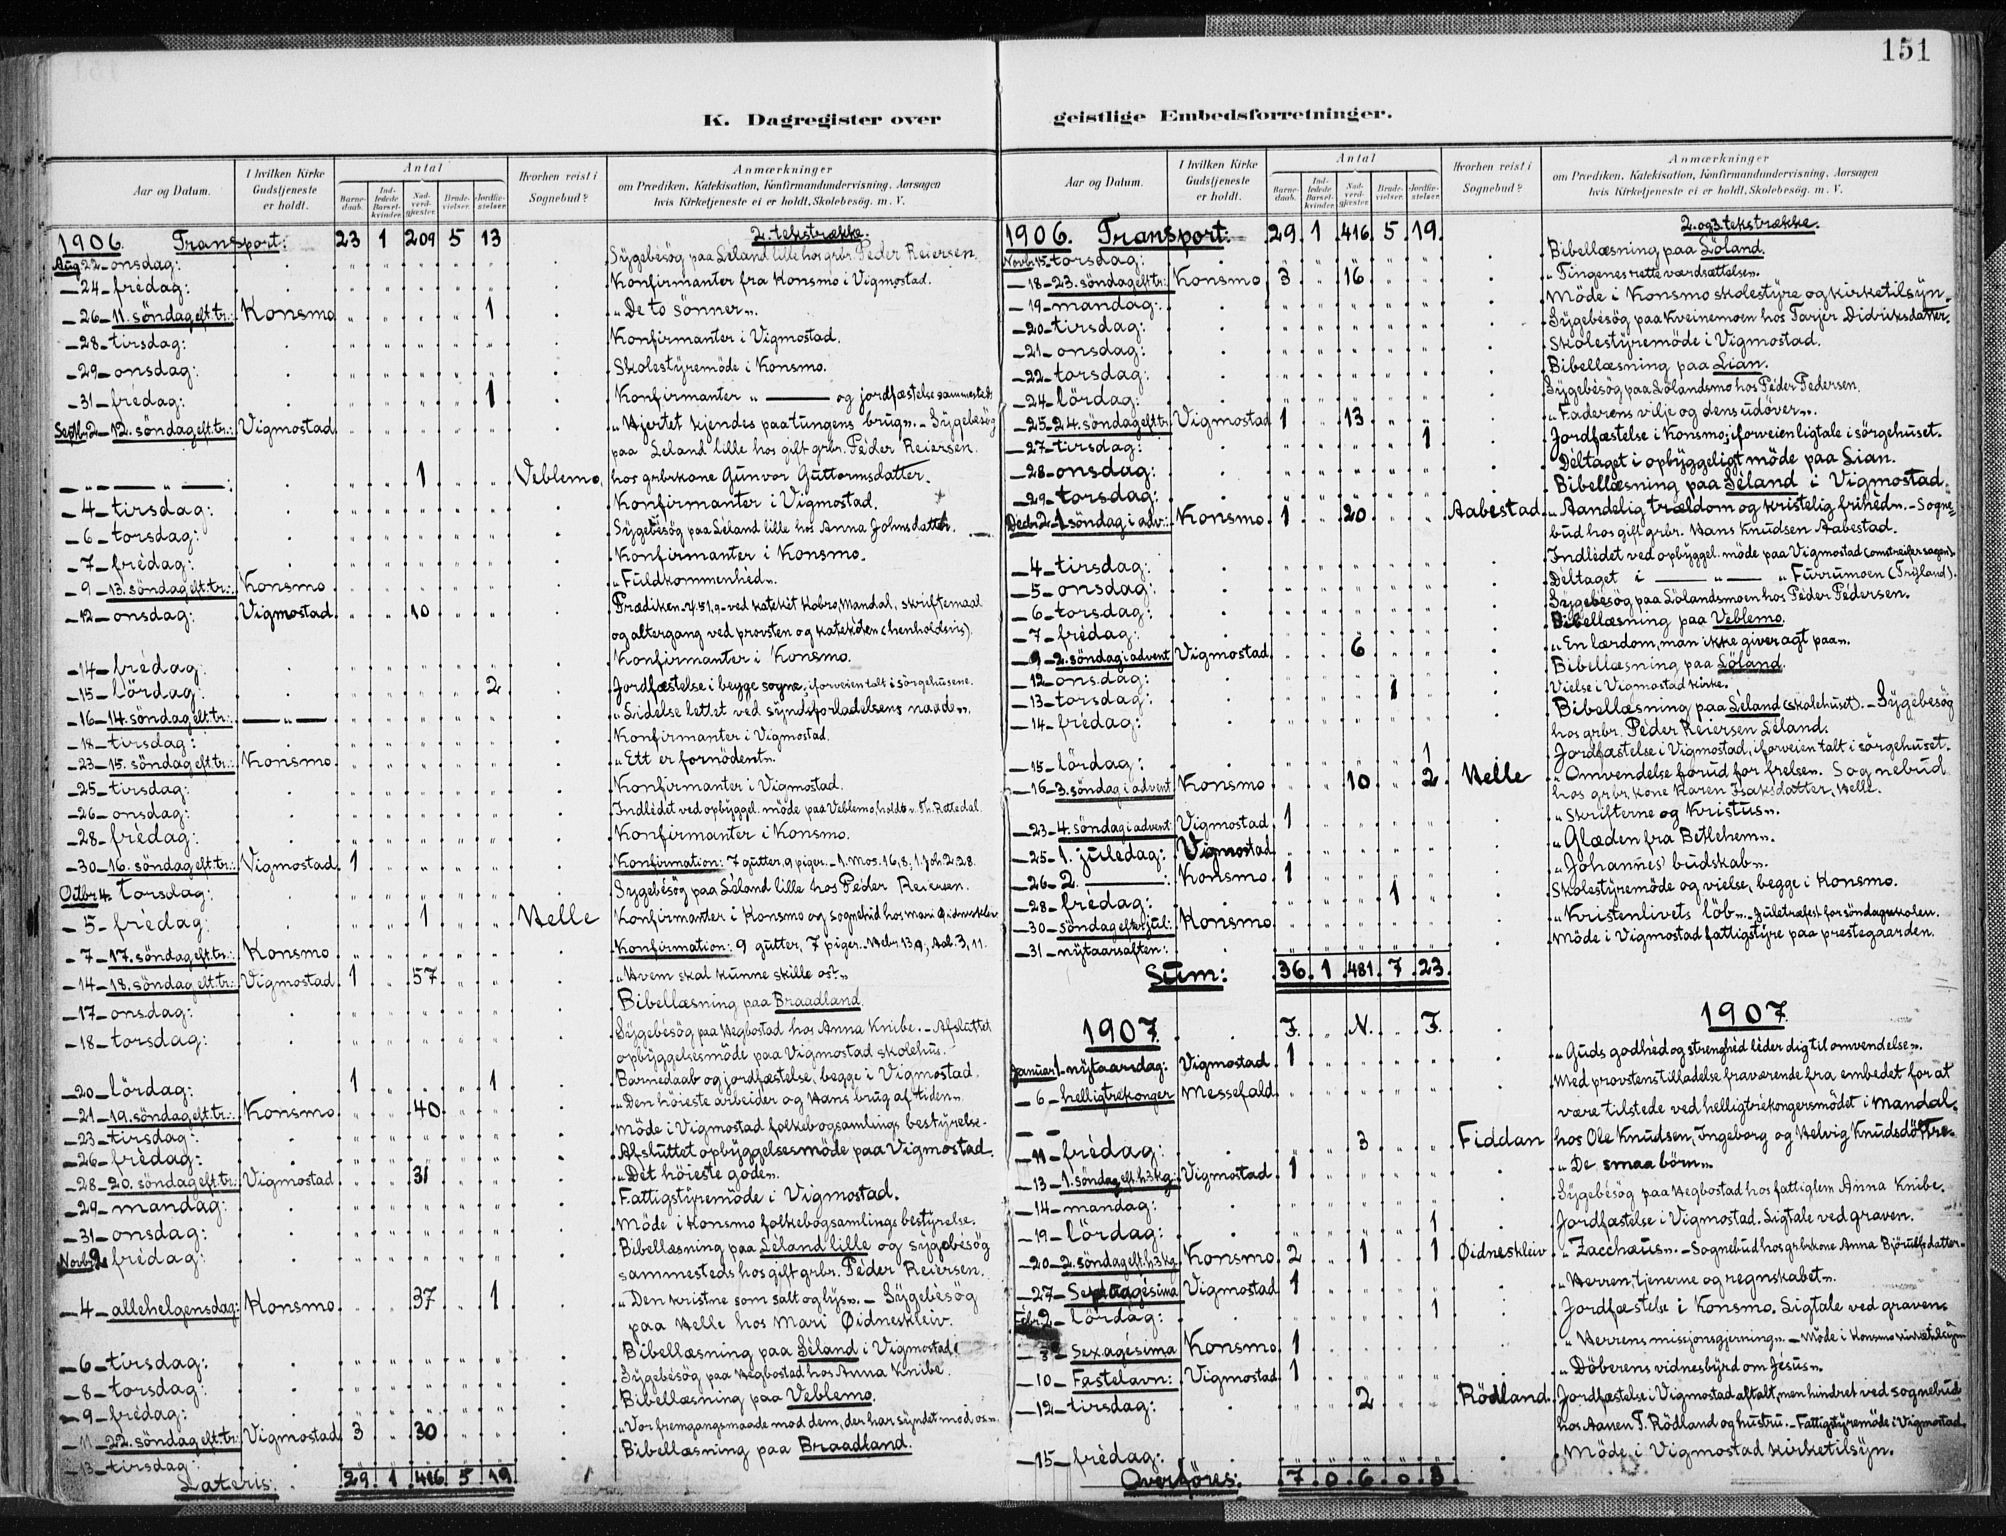 151
K. Dagregister over geistlige Embedsforretninger.
Aar og Datum. | I hvilken Kirke Gudstjeneste er holdt. | Antal | Barnedaab. | Indledede Barselkvinder. | Nadverdgjæster. | Brudevielser. | Jordfæstelser. | Hvorhen reist i Sognebud? | Anmærkninger om Prædiken, Katekisation, Konfirmandundervisning, Aarsagen hvis Kirketjeneste ei er holdt, Skolebesøg. m. V.
1906. Transport: 23 1 209 5 13 2. tekstrække.
Aug. 22 - onsdag: Sygebesög paa Léland lille hos grbr. Péder Reiersen.
- 24 - frédag: Konfirmanter fra Konsmo i Vigmostad.
- 26 - 11. söndag eft. tr.: Konsmo 1 "De to sönner".
- 28 - tirsdag: Konfirmanter i Vigmostad.
- 29 - onsdag: Skolestyremöde i Konsmo.
- 31 - frédag: 1 Konfirmanter " — og jordfæstelse sammesteds
Septbr. 2 - 12. söndag eft. tr.: Vigmostad "Hjertet kjendes paa tungens brug". - Sygebesög
paa Leland lille hos gift grbr. Péder Reiersen.
- " - " - : 1 Veblemo hos grbrkone Gunvor Guttormsdatter.
- 4 - tirsdag: Konfirmanter i Vigmostad.
- 6 - torsdag: Sygebesög paa Léland lille hos Anna Johnsdatter.
- 7 - frédag: Konfirmanter i Konsmo.
- 9 - 13. söndag eft. tr.: Konsmo "Fuldkommenhéd".
- 12 - onsdag: Vigmostad 10 Prædiken ved katekét Kobro, Mandal, skriftemaal
og altergang ved provsten og katekéten (henholdsvis).
- 14 - frédag: Konfirmanter i Konsmo.
- 15 - lördag: 2 Jordfæstelse i begge sogne, iforveien talt i sörgehusene.
- 16 - 14. söndag eft. tr.: — " — "Lidelse lettet ved syndsforladelsens naade".
- 18 - tirsdag: Konfirmanter i Vigmostad.
- 23 - 15. söndag eft. tr.: Konsmo "Ett er fornödent".
- 25 - tirsdag: Konfirmanter i Vigmostad.
- 26 - onsdag: Indlédet ved opbyggel. möde paa Veblemo, holdt v. Th. Rettedal.
- 28 - frédag: Konfirmanter i Konsmo.
- 30 - 16. söndag eft. tr.: Vigmostad 1 Konfirmation: 7 gutter, 9 piger. - 1. Mos. 16,8; 1. Joh. 2,28.
Octbr. 4. torsdag: Sygebésög paa Léland lille hos Péder Reiersen.
- 5 - frédag: 1 Helle Konfirmanter i Konsmo og sognebud hos Mari Øidneskleiv
- 7 - 17. söndag eft. tr.: Konsmo Konfirmation: 9 gutter, 7 piger. - Hebr. 13,9; Aab. 3,11.
- 14 - 18. söndag eft. tr.: Vigmostad 1 57 "Hvem skal kunne skille os?"
- 17 - onsdag: Bibellæsning paa Braadland.
- 18 - torsdag: Sygebésög paa Hegbostad hos Anna Knibe. - Afsluttet
opbyggelsesmöde paa Vigmostad skolehus.
- 20 - lördag: 1 1 Barnedaab og jordfæstelse, begge i Vigmostad.
- 21 - 19. söndag eft. tr.: Konsmo 40 "Den höieste arbeider og Hans brug af tiden".
- 23 - tirsdag: Möde i Vigmostad folkebogsamlings bestyrelse.
- 26 - frédag: Afsluttet opbyggelsesmöde paa Vigmostad.
- 28 - 20. söndag eft. tr.: Vigmostad 31 "Dét höieste gode".
- 29 - mandag: Fattigstyremöde i Vigmostad.
- 31 - onsdag: Möde i Konsmo folkebogsamlings bestyrelse.
Novbr. 2. frédag: Bibellæsning paa Léland lille og sygebésög
sammesteds hos gift grbr. Péder Reiersen.
- 4 - allehelgensdag: Konsmo 37 1 "Den kristne som salt og lys". - Sygebésög
paa Helle hos Mari Øidneskleiv.
- 6 - tirsdag: Bibellæsning paa Léland i Vigmostad.
- 8 - torsdag: Sygebésög paa Hegbostad hos Anna Knibe.
- 9 - frédag: Bibellæsning paa Veblemo.
- 11 - 22. söndag eft. tr.: Vigmostad 3 30 "Vor fremgangsmaade mod dem, der har syndet mod os".
- 13 - tirsdag: Bibellæsning paa Braadland.
Lateris: 29 1 416 5 19
Aar og Datum. | I hvilken Kirke Gudstjeneste er holdt. | Antal | Barnedaab. | Indledede Barselkvinder. | Nadverdgjæster. | Brudevielser. | Jordfæstelser. | Hvorhen reist i Sognebud? | Anmærkninger om Prædiken, Katekisation, Konfirmandundervisning, Aarsagen hvis Kirketjeneste ei er holdt, Skolebesög. m. V.
1906. Transport: 29. 1 416. 5 19. 2. og 3. tekstrække.
Novbr. 15. torsdag: Bibellæsning paa Löland.
- 18 - 23. söndag eft. tr.: Konsmo 3 16 "Tingenes rette værdsættelse".
- 19 - mandag: Möde i Konsmo skolestyre og kirketilsyn.
- 20 - tirsdag: Sygebésög paa Kveinemoen hos Tarjer Didriksdatter.
- 21 - onsdag: Skolestyremöde i Vigmostad.
- 22 - torsdag: Bibellæsning paa Lian.
- 24 - lördag: Sygebésög paa Lölandsmo hos Péder Pedersen.
- 25 - 24. söndag eft. tr. Vigmostad 1 13 "Faderens vilje og dens udöver".
- 27 - tirsdag: 1 Jordfæstelse i Konsmo; iforveien ligtale i sörgehuset.
- 28 - onsdag: Déltaget i opbyggeligt möde paa Lian.
- 29 - torsdag: Bibellæsning paa Léland i Vigmostad.
Decbr. 2 - 1. söndag i adv.: Konsmo 1 20 Aabestad "Aandelig trældom og kristelig frihéd". - Sogne-
bud hos gift grbr. Hans Knudsen Aabestad.
- 4 - tirsdag: Indlédet ved opbyggel. möde paa Vigmostad (omstreifersagen).
- 5 - onsdag: Déltaget i — " — " Furrumoen (Tryland).
- 6 - torsdag: Sygebésög paa Lölandsmoen hos Péder Pédersen.
- 7 - frédag: Bibellæsning paa Veblemo.
- 9 - 2. söndag i advent Vigmostad 6 "En lærdom, man ikke giver agt paa".
- 12 - onsdag: Bibellæsning paa Löland.
- 13 - torsdag: 1 Vielse i Vigmostad kirke.
- 14 - frédag: Bibellæsning paa Léland (skolehuset). - Sygebésög
hos grbr. Péder Reiersen Léland.
- 15 - lördag: 1 Jordfæstelse i Vigmostad, iforveien talt i sörgehuset.
- 16 - 3. söndag i advent Konsmo 10 2 Helle "Omvendelse forud for frelse". Sognebud
hos grbr. kone Karen Isaksdatter, Helle.
- 23 - 4. söndag i advent: Vigmostad 1 "Skrifterne og Kristus".
- 25 - 1. juledag: Vigmostad "Glæden fra Betlehem".
- 26 - 2. —: Konsmo 1 "Johannes' budskab".
- 28 - frédag: 1 Skolestyremöde og vielse, begge i Konsmo.
- 30 - söndag efter jul: Konsmo "Kristenlivets löb". - Juletræfest for söndagsskolen.
- 31 - nytaarsaften: Möde i Vigmostad fattigstyre paa prestegaarden.
Sum: 36. 1 481. 7 23.
1907 F. N. F. 1907
Januar 1. nytaarsdag: Vigmostad 1 "Guds godhéd og strenghéd léder dig til omvendelse".
- 6 - helligtrekonger Messefald Med provstens tilladelse fraværende fra embedet for at
være tilstede ved helligtrékongersmödet i Mandal.
- 11 - frédag: 3 Fiddan hos Ole Knudsen, Ingeborg og Helvig Knudsdöttre.
- 13 - 1. söndag eft. h3kg: Vigmostad 1 "De smaa börn".
- 14 - mandag: Sygebésög paa Hegbostad hos fattiglem Anna Knibe.
- 19 - lördag: 1 Jordfæstelse i Vigmostad. Ligtale ved graven.
- 20 - 2. söndag eft. h3kg Konsmo 2 1 1 Øidneskleiv "Zacchæus". - Sognebud hos grbrkone Anna Björulfsdatter
- 27 - Septuagésima Vigmostad 1 "Herren, tjenerne og regnskabet".
Febr. 2 - lördag: 1 Jordfæstelse i Konsmo. Ligtale ved graven.
- 3 - Sexagésima Konsmo 1 "Herrens missjonsgjerning". - Möde i Konsmo kirketilsyn
- 10 - Fastelavn: Vigmostad 1 "Döberens vidnesbyrd om Jésus".
- 12 - tirsdag: 2 Rödland Jordfæstelse i Vigmostad aftalt, men hindret ved sognebud
hos Aanen T. Rödland og hustru. - Fattigstyremöde i Vigmostad.
- 15 - frédag: Möde i Vigmostad kirketilsyn.
Overföres: 7 0 6 0 3